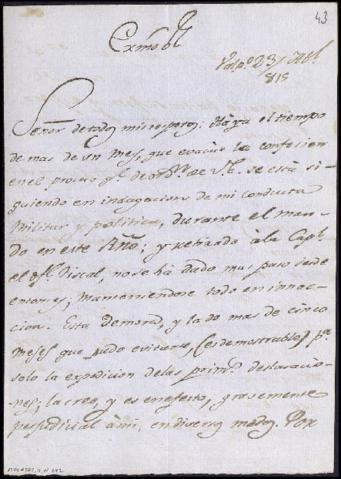 43
Exmo Sor
Valpo 23/
Señor de todos mis respetos: Há ya el tiempo
de mas de un Mes, que evacué la confesion
en el proceso qe. de ordn. de V.E. se está si-
guiendo en indagacion de mi conducta
Militar y politica, durante el man-
do en este Año; y retirado à la Capl.
el Sr. Fiscal, no se há dado mas paso desde
entonces; manteniendose todo en innac-
cion. Esta demora, y la de mas de cinco
Meses que pudo evitarse, (es demostrable) pa.
solo la expedicion de las prims. declaracio-
nes; la creo, y es en efecto, gravemente
perjudicial à mi, en diversos modos. Por